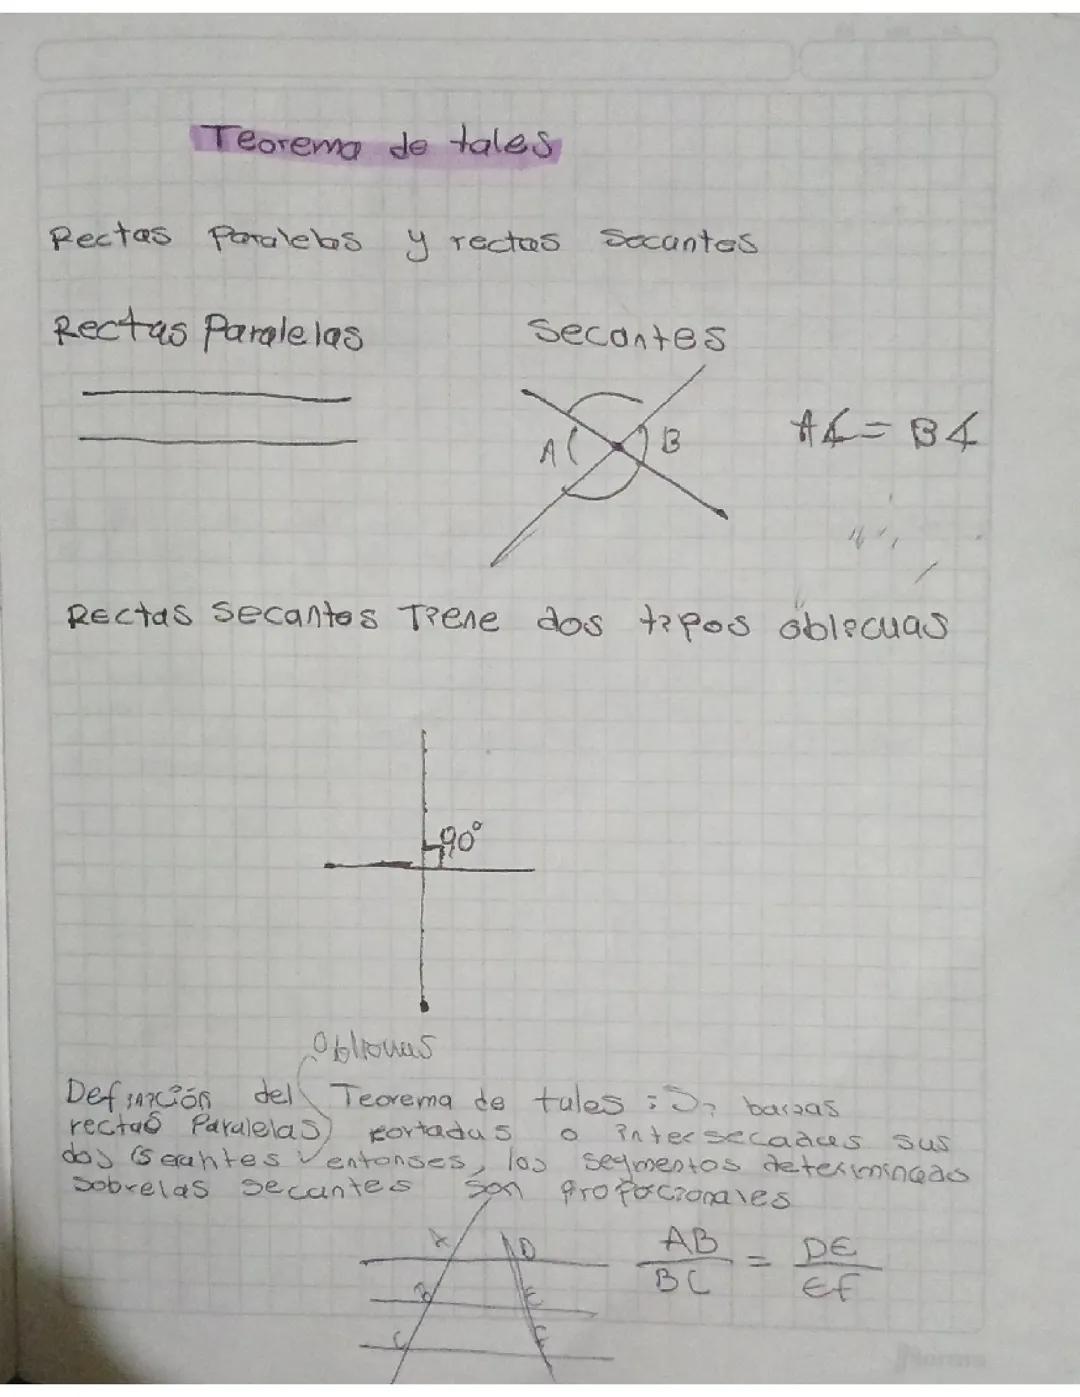 Teorema de tales
Rectas Paralelas y rectas Secantes
Rectas Paralelas
Secantes
A
B
A∡ = B∡
Rectas Secantes Tiene dos tipos oblicuas
90°
Oblicuas
Definición del Teorema de tales : Si barias
rectas Paralelas cortadas o intersecadas sus
dos Secantes entonses, los segmentos determinados
sobrelas secantes son proporcionales
A D
B E
C F
AB/BC = DE/EF
Norma